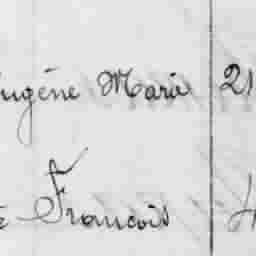 Eugène Marie 21
François